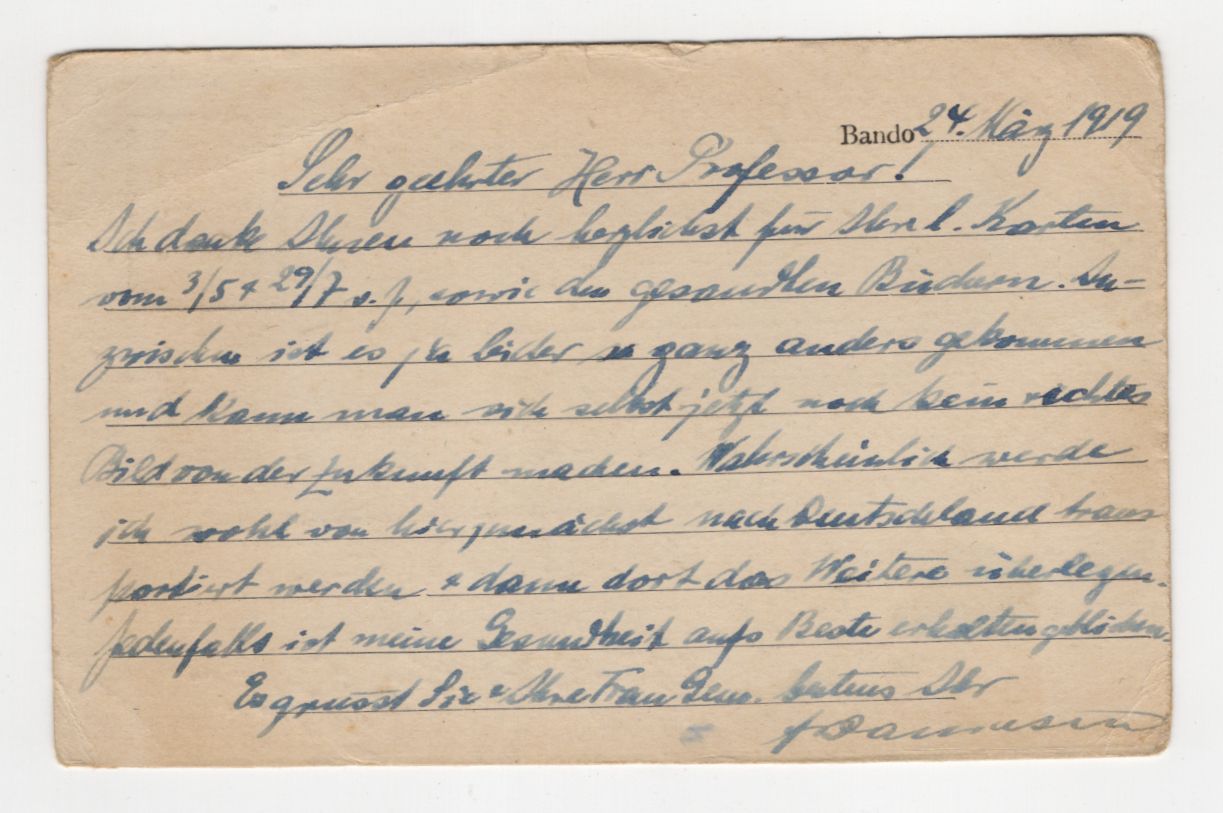 Bando 24. März 1919
Sehr geehrter Herr Professor.
Ich danke Ihnen noch herzlichst für Ihre l. Karten
vom 3/5 & 29/7 v. J., sowie den gesandten Büchern. In-
zwischen ist es ja leider so ganz anders gekommen
und kann man sich selbst jetzt noch kein rechtes
Bild von der Zukunft machen. Wahrscheinlich werde
ich wohl von hier zunächst nach Deutschland trans
portiert werden & dann dort das Weitere überlegen.
Jedenfalls ist meine Gesundheit aufs Beste erhalten geblieben.
Es grüsst Sie & Ihre Frau Gem. bestens Ihr